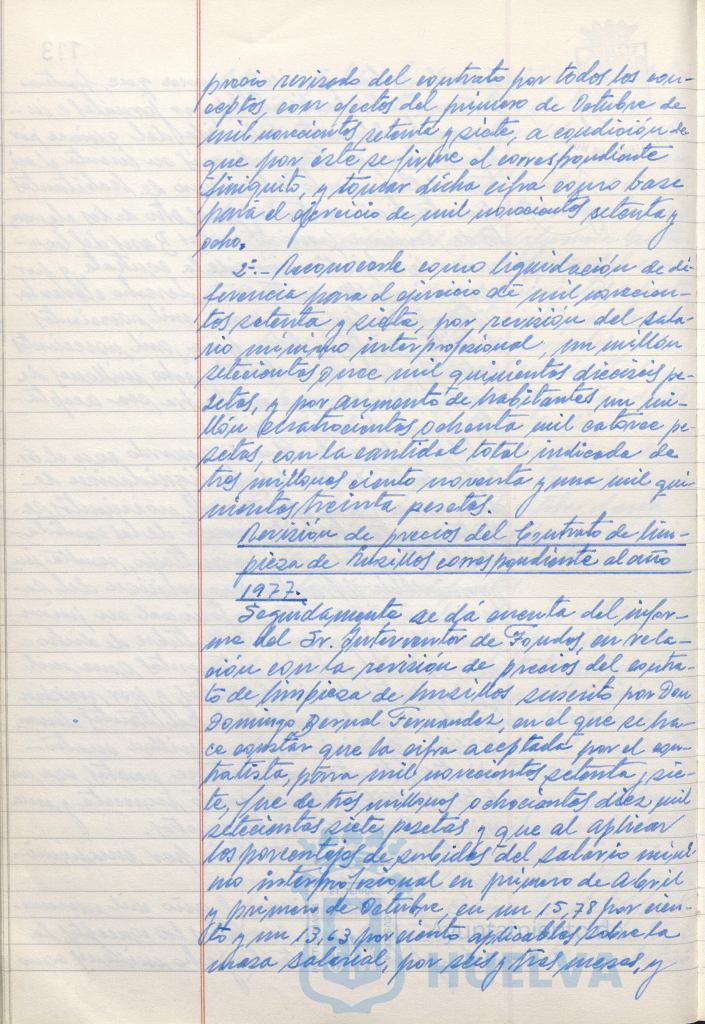 precio revisado del contrato por todos los con-
ceptos, con efectos del primero de Octubre de
mil novecientos setenta y siete, a condición de
que por éste se firme el correspondiente
finiquito, y tomar dicha cifra como base
para el ejercicio de mil novecientos setenta y
ocho.
2º.- Reconocerle como liquidación de di-
ferencia para el ejercicio de mil novecien-
tos setenta y siete, por revisión del sala-
rio mínimo interprofesional, un millón
setecientas once mil quinientas dieciseis pe-
setas, y por aumento de habitantes un mi-
llón cuatrocientas ochenta mil catorce pe-
setas, con la cantidad total indicada de
tres millones ciento noventa y una mil qui-
nientas treinta pesetas.
Revisión de precios del Contrato de lim-
pieza de husillos correspondiente al año
1977.
Seguidamente se dá cuenta del infor-
me del Sr. Interventor de Fondos, en rela-
ción con la revisión de precios del contra-
to de limpieza de husillos suscrito por Don
Domingo Bernal Fernandez, en el que se ha-
ce constar que la cifra aceptada por el con-
tratista, para mil novecientos setenta y sie-
te, fue de tres millones ochocientas diez mil
setecientas siete pesetas y que al aplicar
los porcentajes de subidas del salario míni-
mo interprofesional en primero de Abril
y primero de Octubre, en un 15,78 por cien-
to y un 13,63 por ciento aplicables sobre la
masa salarial, por seis y tres meses, y
HUELVA